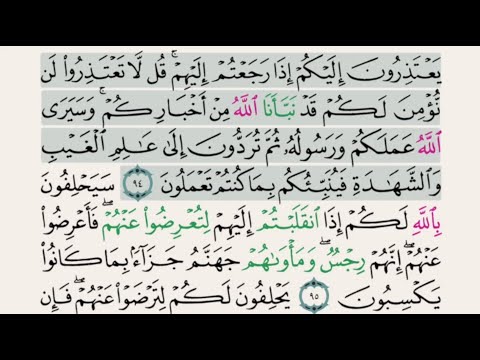 يَعْتَذِرُونَ إِلَيْكُمْ إِذَا رَجَعْتُمْ إِلَيْهِمْ ۚ قُل لَّا تَعْتَذِرُوا۟ لَن
نُّؤْمِنَ لَكُمْ قَدْ نَبَّأَنَا ٱللَّهُ مِنْ أَخْبَارِكُمْ ۚ وَسَيَرَى
ٱللَّهُ عَمَلَكُمْ وَرَسُولُهُۥ ثُمَّ تُرَدُّونَ إِلَىٰ عَـٰلِمِ ٱلْغَيْبِ
وَٱلشَّهَـٰدَةِ فَيُنَبِّئُكُم بِمَا كُنتُمْ تَعْمَلُونَ ٩٤ سَيَحْلِفُونَ
بِٱللَّهِ لَكُمْ إِذَا ٱنقَلَبْتُمْ إِلَيْهِمْ لِتُعْرِضُوا۟ عَنْهُمْ ۖ فَأَعْرِضُوا۟
عَنْهُمْ ۖ إِنَّهُمْ رِجْسٌ ۖ وَمَأْوَىٰهُمْ جَهَنَّمُ جَزَآءًۢ بِمَا كَانُوا۟
يَكْسِبُونَ ٩٥ يَحْلِفُونَ لَكُمْ لِتَرْضَوْا۟ عَنْهُمْ ۖ فَإِن